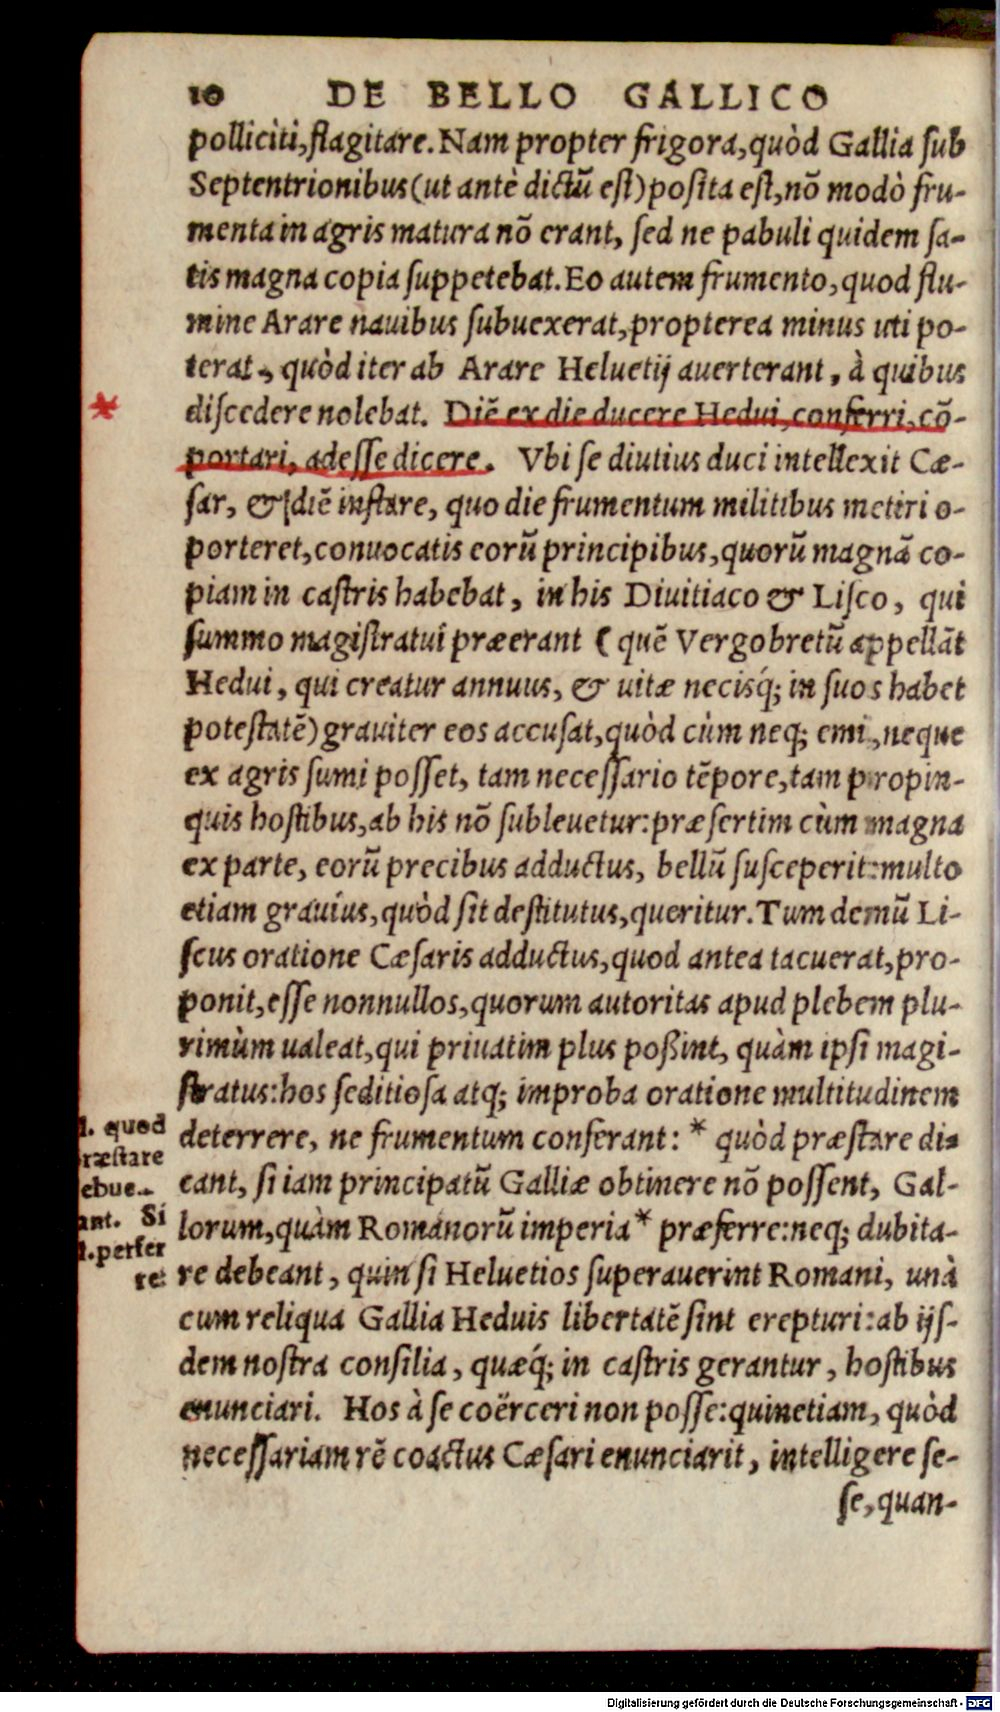 10 DE BELLO GALLICO
polliciti, flagitare. Nam propter frigora, quòd Gallia ſub
Septentrionibus (ut antè dictũ eſt) poſita eſt, nõ modò fru-
menta in agris matura nõ erant, ſed ne pabuli quidem ſa-
tis magna copia ſuppetebat. Eo autem frumento, quod flu-
mine Arare nauibus ſubuexerat, propterea minus uti po-
terat, quòd iter ab Arare Heluetij auerterant, à quibus
* diſcedere nolebat. Diẽ ex die ducere Hedui, conferri, cõ-
portari, adeſſe dicere. Vbi ſe diutius duci intellexit Cæ-
ſar, & diẽ inſtare, quo die frumentum militibus metiri o-
porteret, conuocatis eorũ principibus, quorũ magnã co-
piam in caſtris habebat, in his Diuitiaco & Liſco, qui
ſummo magiſtratui præerant (quẽ Vergobretũ appellãt
Hedui, qui creatur annuus, & uitæ necisq́; in ſuos habet
poteſtatẽ) grauiter eos accuſat, quòd cùm neq; emi, neque
ex agris ſumi poſſet, tam neceſſario tẽpore, tam propin-
quis hoſtibus, ab his nõ ſubleuetur: præſertim cùm magna
ex parte, eorũ precibus adductus, bellũ ſuſceperit: multo
etiam grauius, quòd ſit deſtitutus, queritur. Tum demũ Li-
ſcus oratione Cæſaris adductus, quod antea tacuerat, pro-
ponit, eſſe nonnullos, quorum autoritas apud plebem plu-
rimùm ualeat, qui priuatim plus poßint, quàm ipſi magi-
ſtratus: hos ſeditioſa atq; improba oratione multitudinem
deterrere, ne frumentum conferant: * quòd præſtare di-
cant, ſi iam principatũ Galliæ obtinere nõ poſſent, Gal-
lorum, quàm Romanorũ imperia * præferre: neq; dubita-
re debeant, quin ſi Heluetios ſuperauerint Romani, unà
cum reliqua Gallia Heduis libertatẽ ſint erepturi: ab ijſ-
dem noſtra conſilia, quæq́; in caſtris gerantur, hoſtibus
enunciari. Hos à ſe coërceri non poſſe: quinetiam, quòd
neceſſariam rẽ coactus Cæſari enunciarit, intelligere ſe-
ſe, quan-
l. quod
ræſtare
ebue-
ant. Si
l. perfer
re:
Digitalisierung gefördert durch die Deutsche Forschungsgemeinschaft - DFG